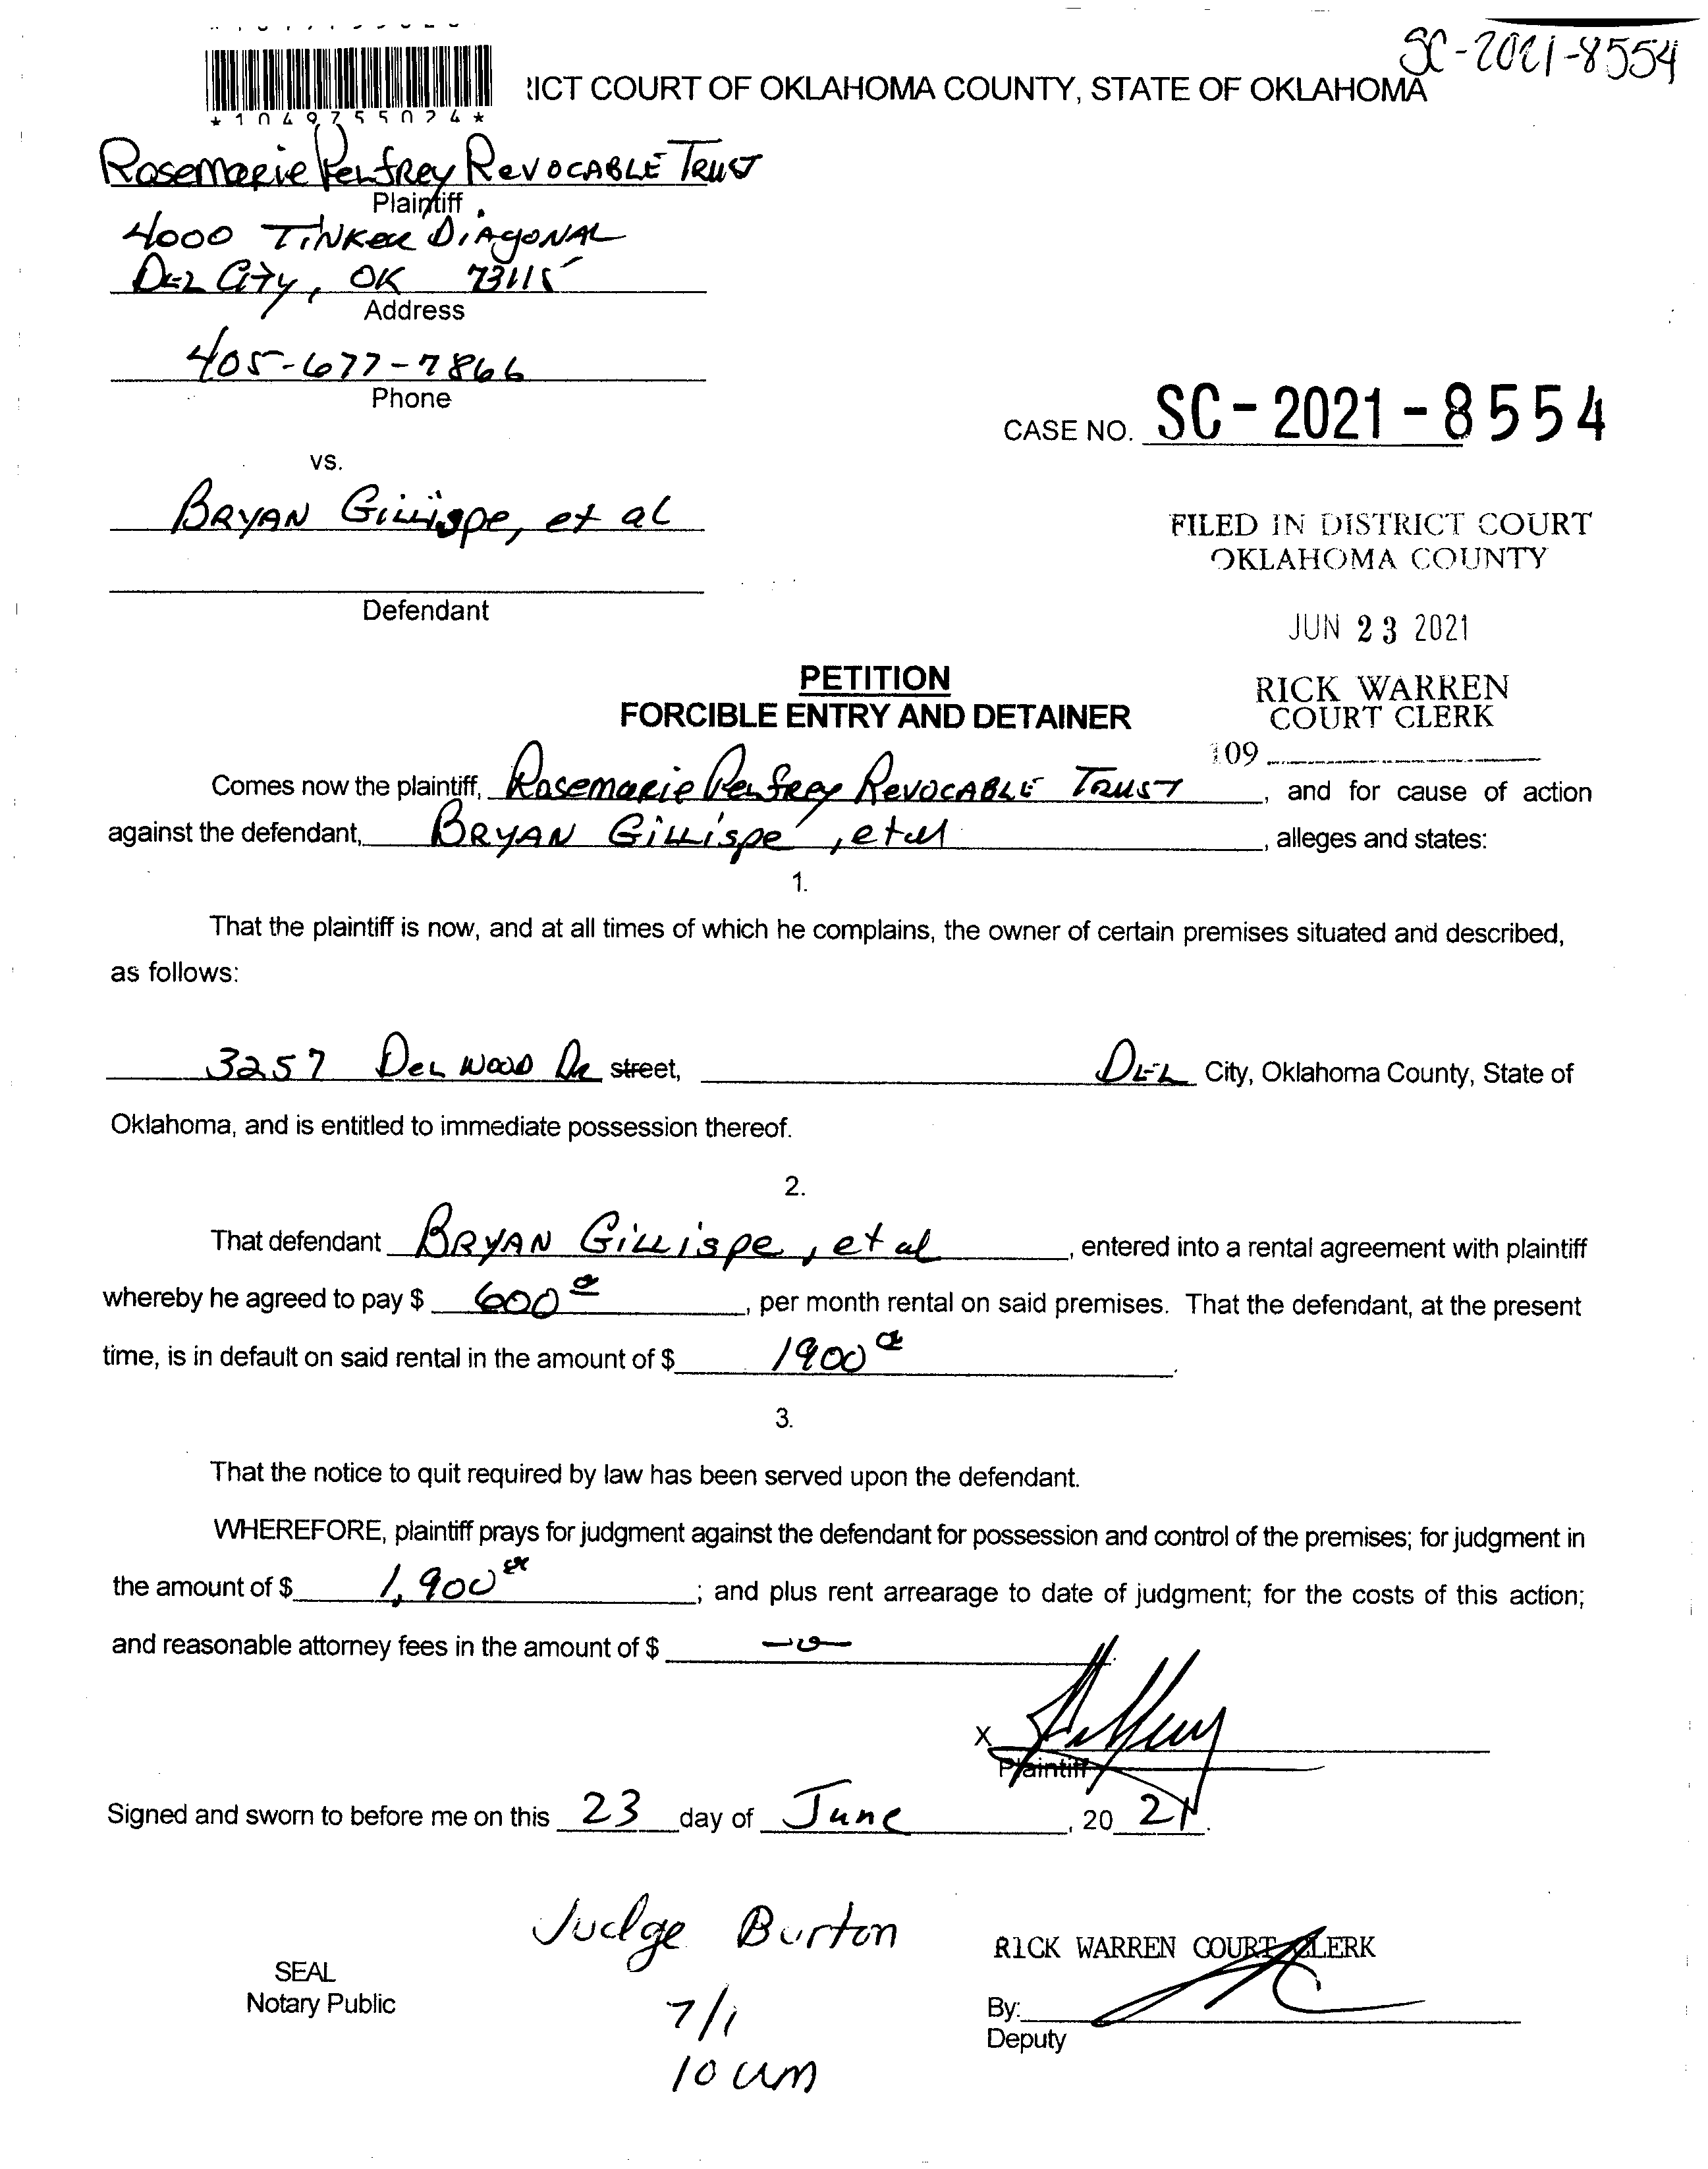 SC-2021-8554
*1049755024*
RICT COURT OF OKLAHOMA COUNTY, STATE OF OKLAHOMA
Rosemarie Pelfrey Revocable Trust
Plaintiff
4000 Tinker Diagonal
Del City, OK 73115
Address
405-677-7866
Phone
CASE NO. SC-2021-8554
vs.
Bryan Gillispe, et al
FILED IN DISTRICT COURT
OKLAHOMA COUNTY
Defendant
JUN 23 2021
PETITION
FORCIBLE ENTRY AND DETAINER
RICK WARREN
COURT CLERK
109
Comes now the plaintiff, Rosemarie Pelfrey Revocable Trust, and for cause of action
against the defendant, Bryan Gillispe, et al, alleges and states:
1.
That the plaintiff is now, and at all times of which he complains, the owner of certain premises situated and described,
as follows:
3257 Del Wood Dr street, Del City, Oklahoma County, State of
Oklahoma, and is entitled to immediate possession thereof.
2.
That defendant Bryan Gillispe, et al, entered into a rental agreement with plaintiff
whereby he agreed to pay $ 600, per month rental on said premises. That the defendant, at the present
time, is in default on said rental in the amount of $ 1900.
3.
That the notice to quit required by law has been served upon the defendant.
WHEREFORE, plaintiff prays for judgment against the defendant for possession and control of the premises; for judgment in
the amount of $ 1,900; and plus rent arrearage to date of judgment; for the costs of this action;
and reasonable attorney fees in the amount of $ -0-.
X
Plaintiff
Signed and sworn to before me on this 23 day of June, 20 21.
Judge Burton
RICK WARREN COURT CLERK
SEAL
Notary Public
7/1
By:
Deputy
10 am